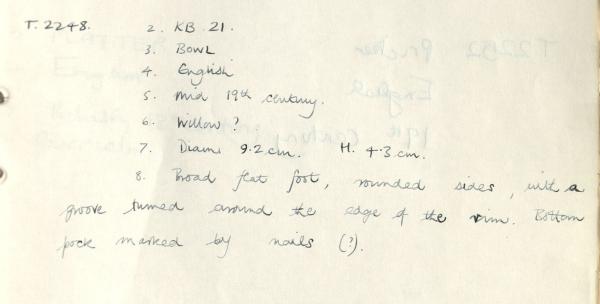 T.2248. 2. KB 21.
3. Bowl
4. English
5. Mid 19th century.
6. Willow?
7. Diam 9.2 cm. H. 4.3 cm.
8. Broad flat foot, rounded sides, with a
groove turned around the edge of the rim. Bottom
pock marked by nails (?).